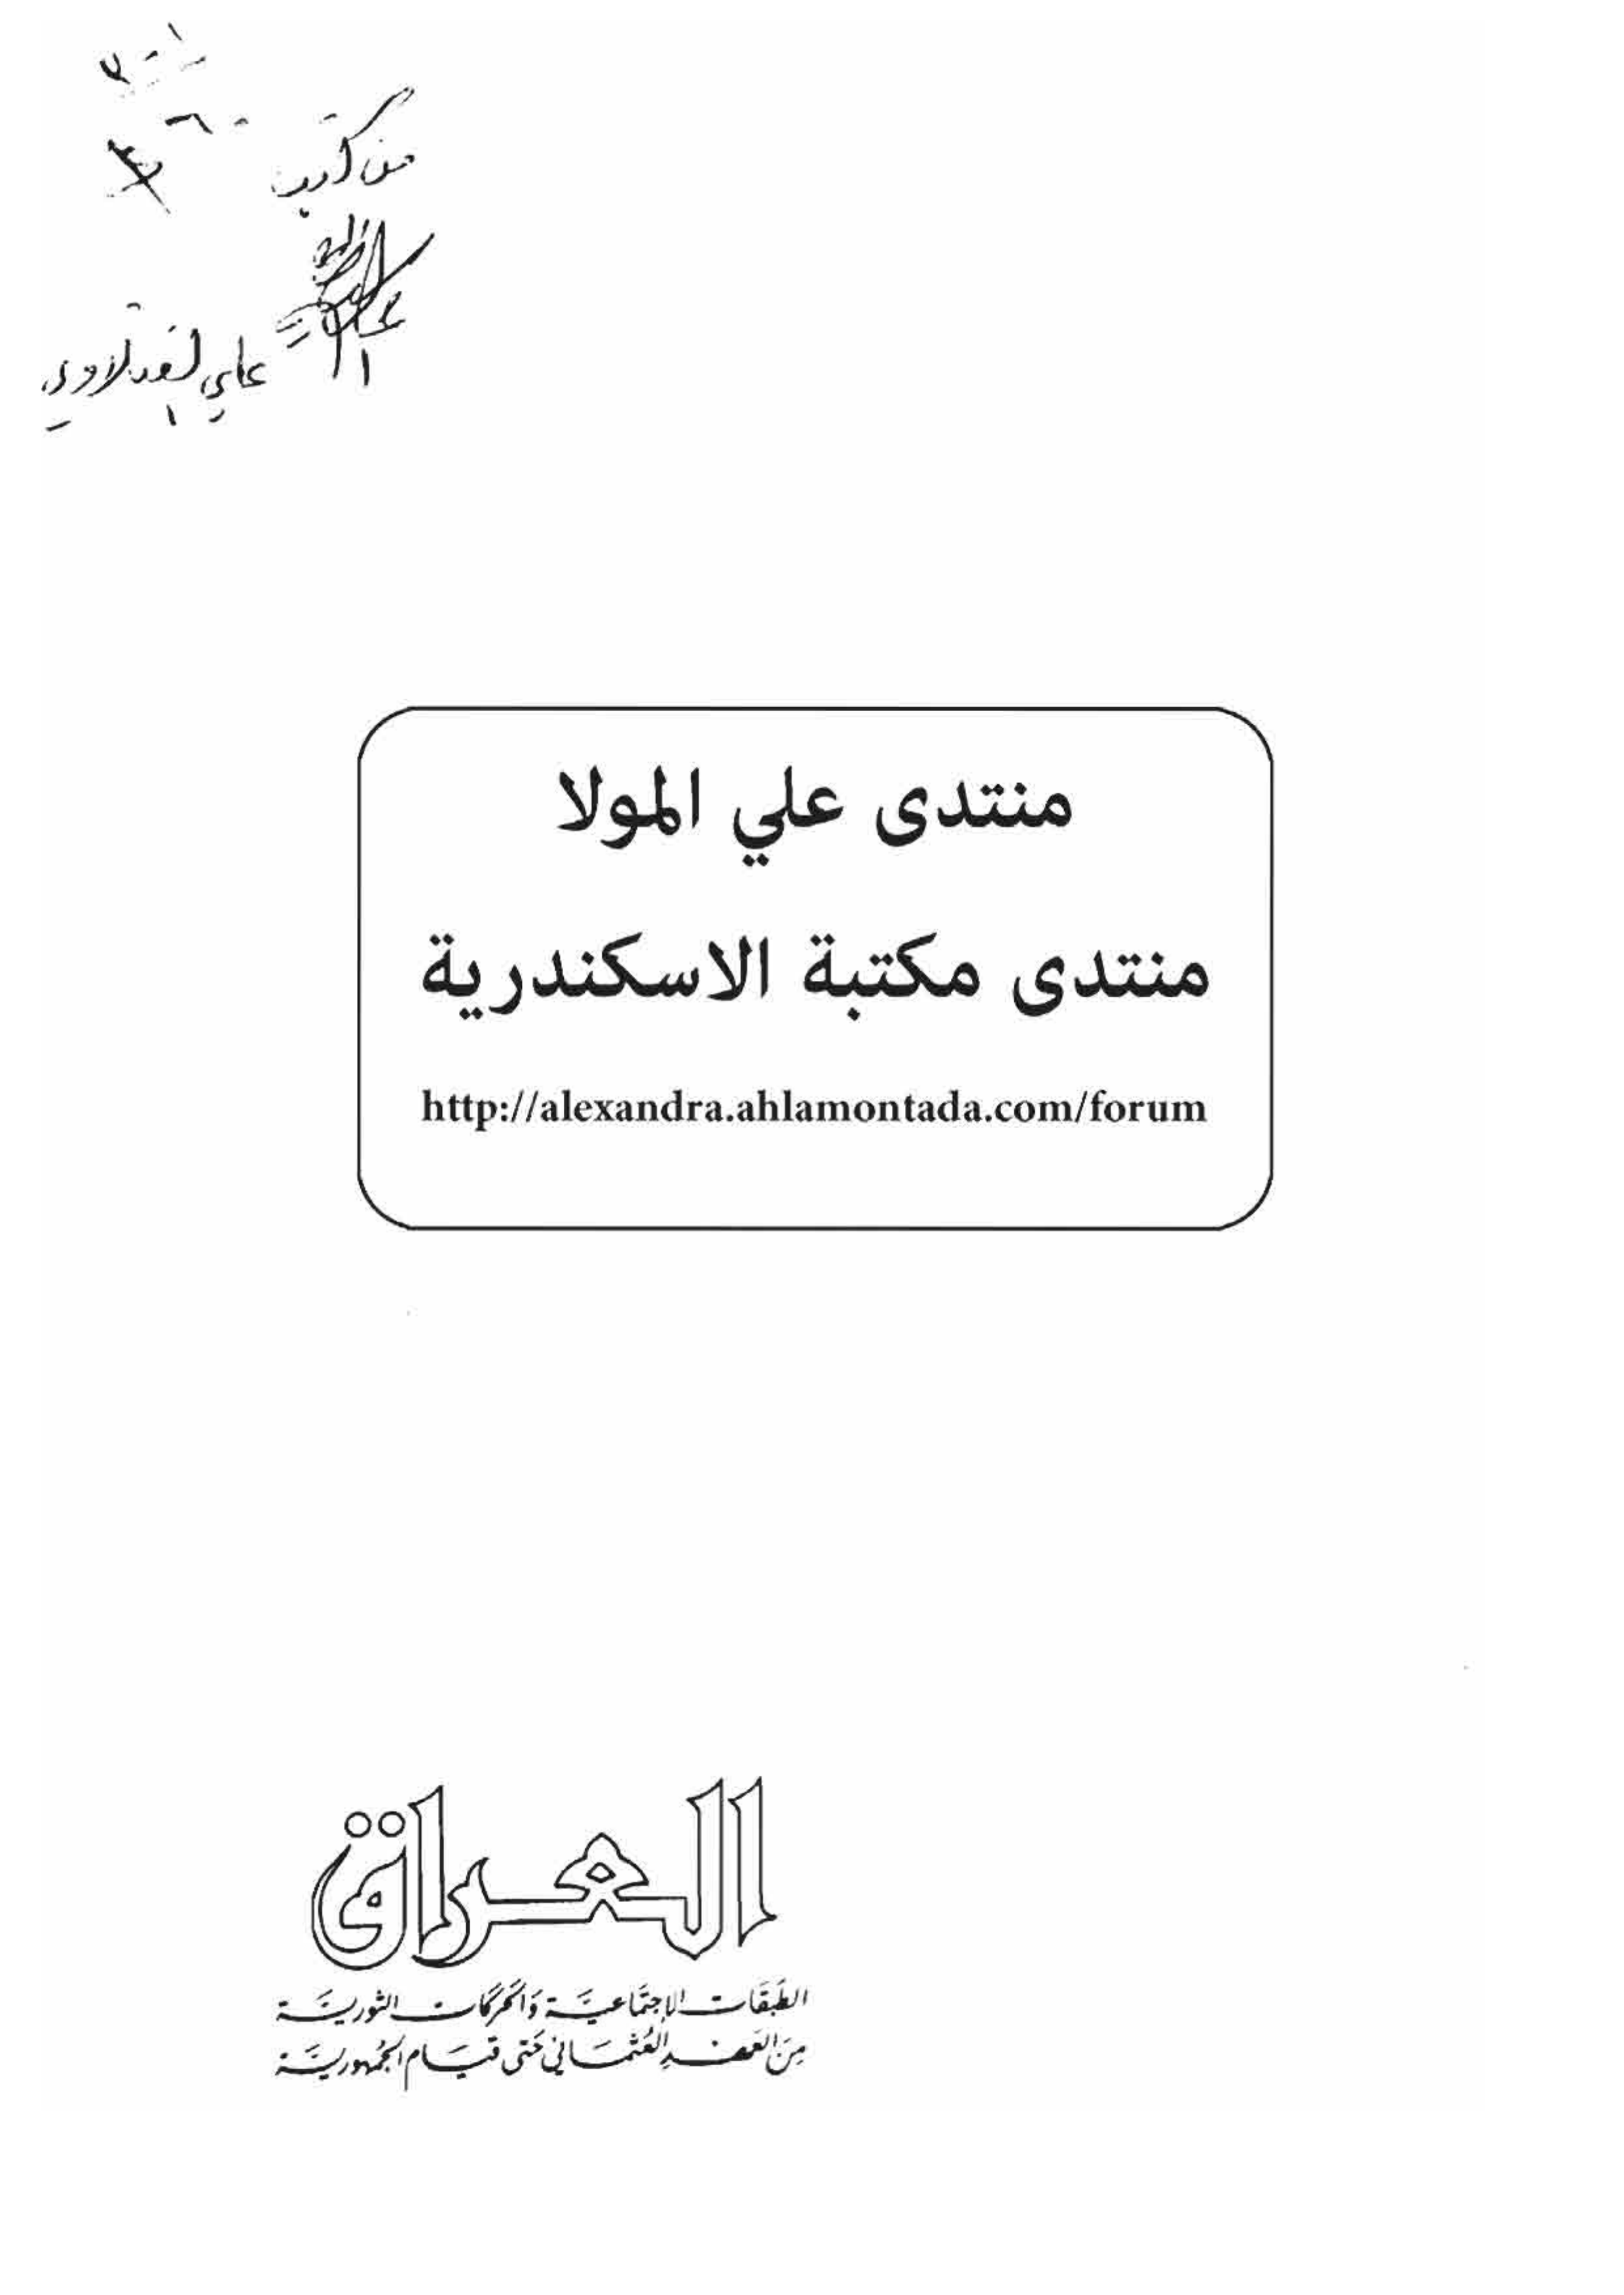 من كتب
علي
منتدى علي المولا
منتدى مكتبة الاسكندرية
http://alexandra.ahlamontada.com/forum
العراق
الطَبَقَات الإجتمَاعيَّة وَالحَركَات الثوريَّة
مِنَ العَهْد العُثمَاني حَتى قيَام الجُمهوريَّة